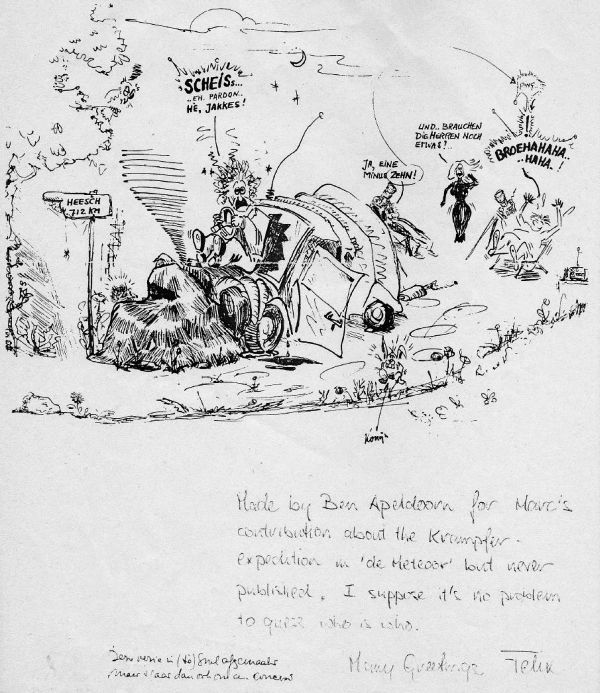 SCHEISS...
..EH. PARDON..
HE, JAKKES!
HEESCH
712 KM
JA, EINE
MINUS ZEHN!
UND.. BRAUCHEN
DIE HERREN NOCH
ETWAS?..
BROEHAHAHA..
..HAHA..!
König
Made by Ben Apeldoorn for Marc's
contribution about the Krumpfer-
expedition in 'de Meteoor' but never
published. I suppose it's no problem
to guess who is who.
Many Greetings Felix
Deze versie is (te) snel afgemaakt
maar 't was dan ook om een concert